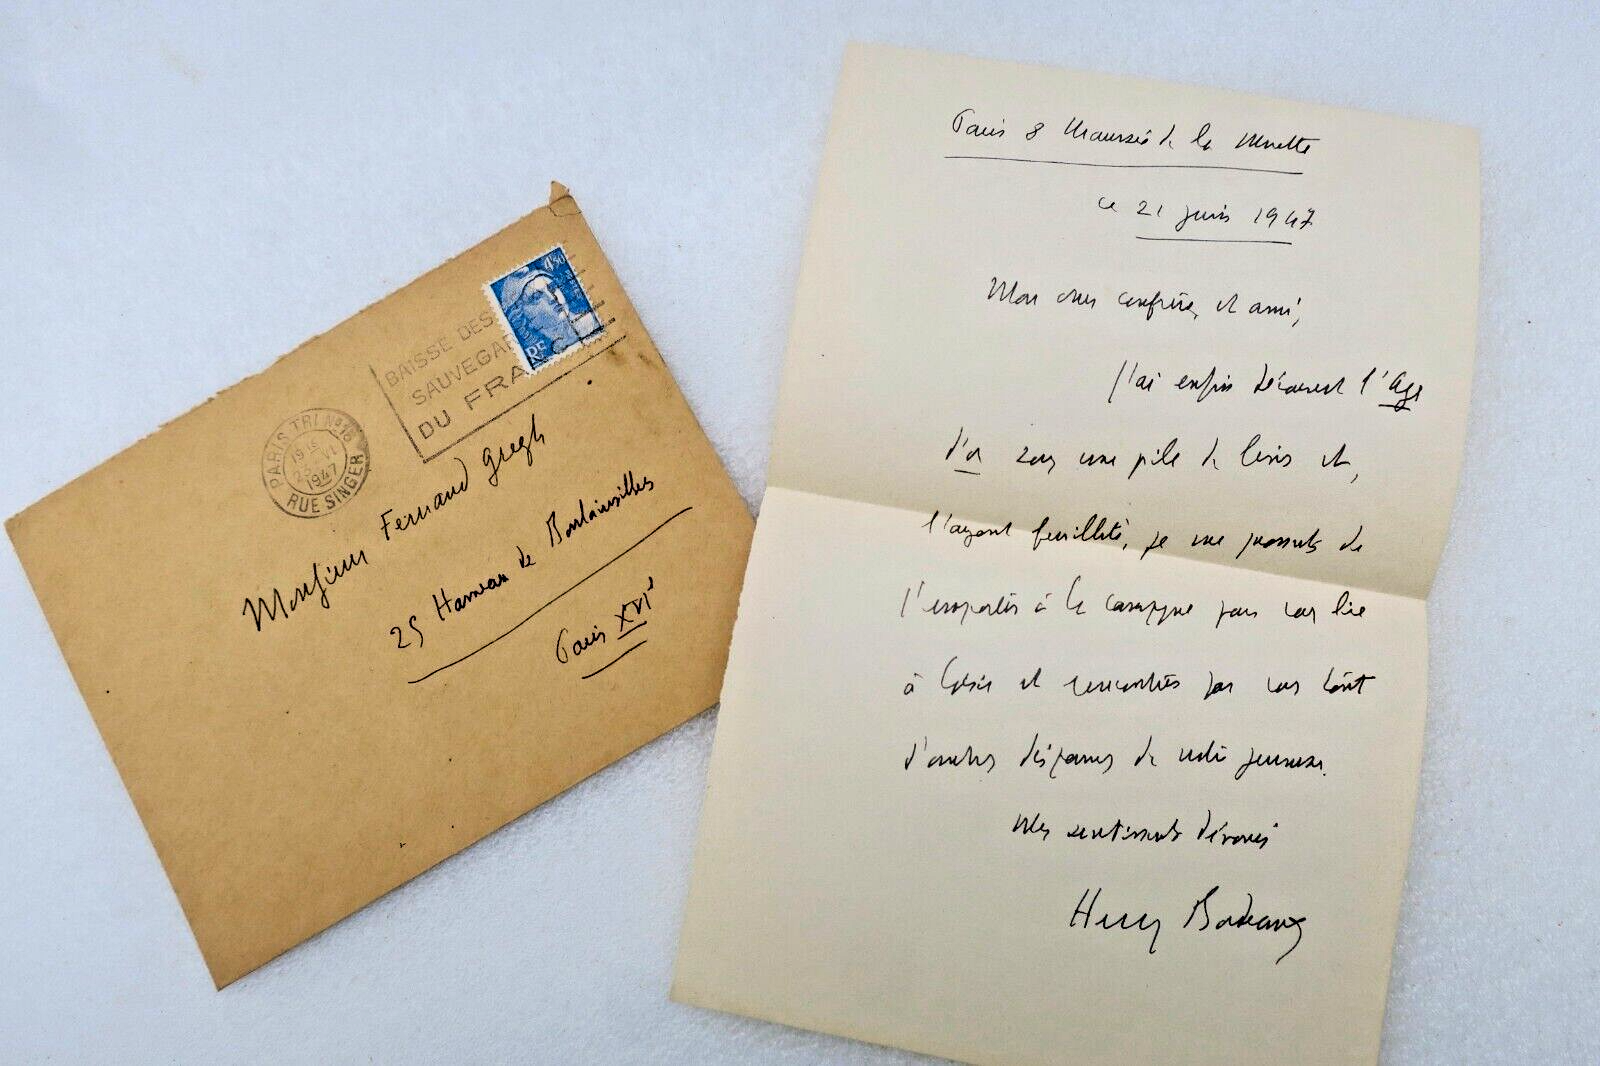 4F50
RF
BAISSE DES
SAUVEGAR
DU FRANC
PARIS TRI Nº 16
19 15
23 VI
1947
RUE SINGER
Monsieur Fernand Gregh
25 Hameau de Boulainvilliers
Paris XVIe
Paris 8 Chaussée de la Muette
ce 21 juin 1947
Mon cher confrère et ami,
J'ai enfin découvert l'Age
d'or sous une pile de livres et,
l'ayant feuilleté, je me promets de
l'emporter à la campagne pour vous lire
à loisir et rencontrer par vous tant
d'ombres disparues de notre jeunesse.
Mes sentiments dévoués
Henry Bordeaux